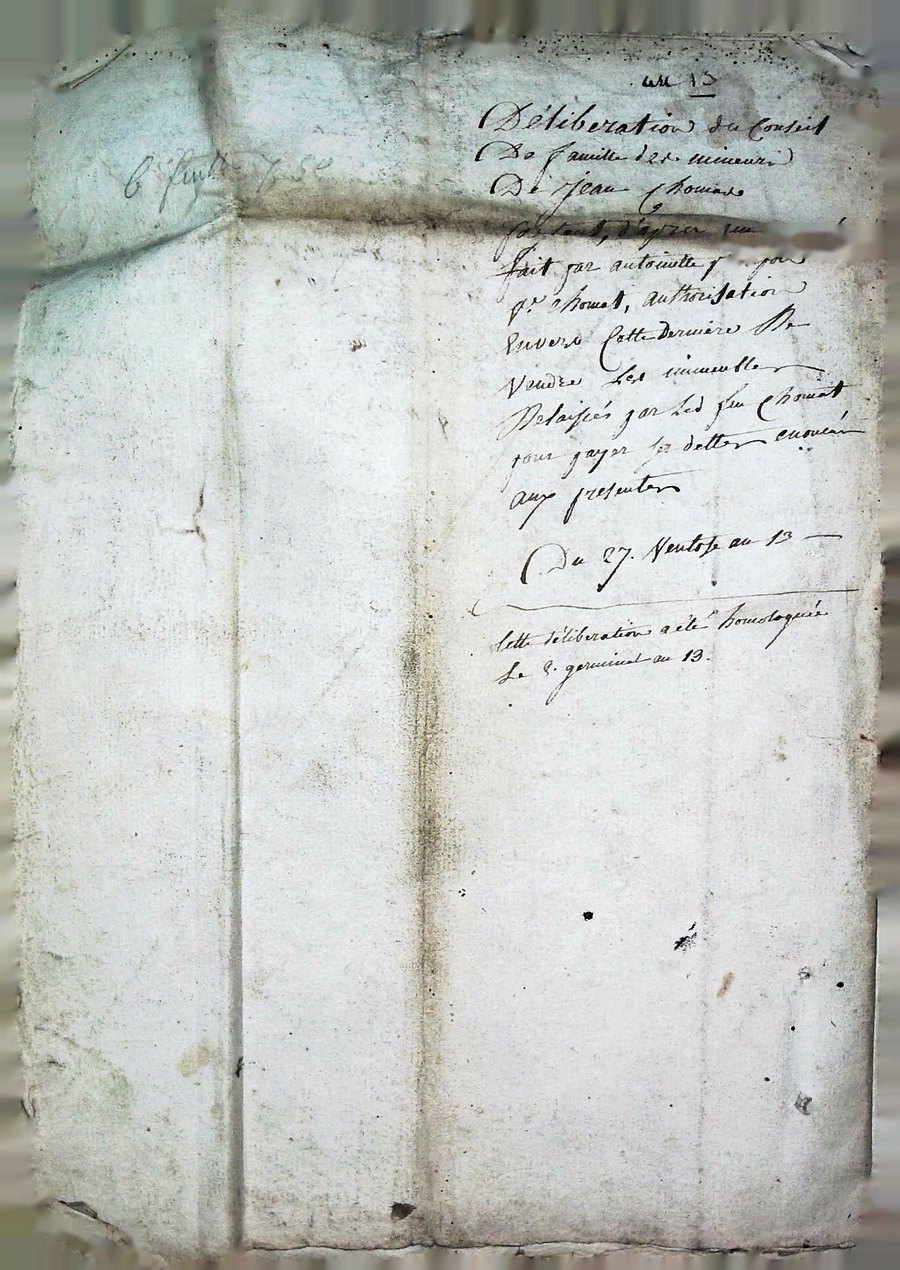 an 13
Déliberation du Conseil
De famille des mineurs
De Jean Chomat
portant, d'après un
fait par antoinette
Chomat, authorisation
Envers Cette Derniere De
Vendre Les immeubles
Delaissés par Led feu Chomat
pour payer ses dettes enoncés
aux presentes
Du 27. Ventose an 13
Cette déliberation a été homologuée
Le 8. germinal an 13.